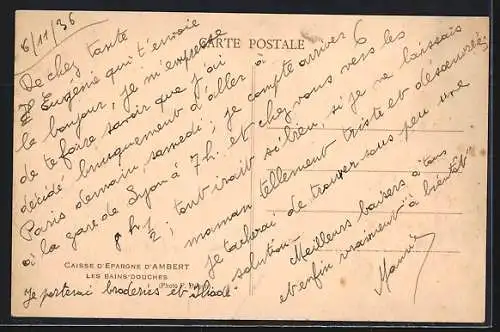 6/11/36
CARTE POSTALE
De chez tante
Eugénie qui t'envoie
le bonjour, je m'empresse
de te faire savoir que j'ai
décidé brusquement d'aller à
Paris demain samedi; je compte arriver
à la gare de Lyon à 7 h. et chez vous vers les
8 h 1/2; tout irait si bien, si je ne laissais
maman tellement triste et désoeuvrée;
je tâcherai de trouver sous peu une
solution.
Meilleurs baisers à tous
et enfin vraiment à bientôt
CAISSE D'EPARGNE D'AMBERT
LES BAINS-DOUCHES
(Photo
Je porterai broderies et